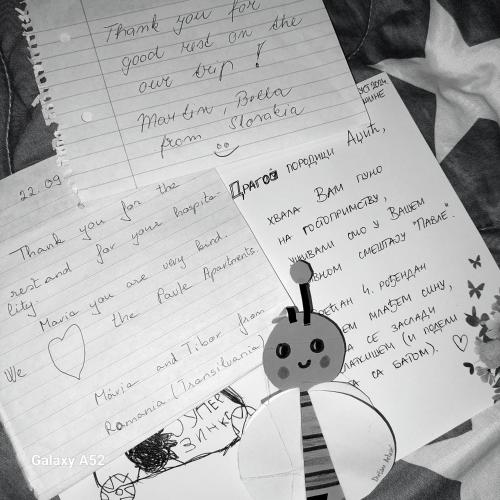 Thank you for
good rest on the
our trip!
Martin, Bella
from Slovakia
22.09
Thank you for the
rest and for your hospita-
lity.
Maria you are very kind.
We ♡ the Pavle Apartments.
Mária and Tibor from
Romania (Transilvania)
ДРАГОЈ ПОРОДИЦИ АЦИЋ,
ХВАЛА ВАМ ПУНО
НА ГОСТОПРИМСТВУ,
УЖИВАЛИ СМО У ВАШЕМ
СМЕШТАЈУ "ПАВЛЕ".
4. РОЂЕНДАН
МЛАЂЕМ СИНУ,
ДА СЕ ЗАСЛАДИ
СЛАТКИШЕМ (И ПОДЕЛИ
ГА СА БАТОМ).
СУПЕР
ЗИНКС
Galaxy A52